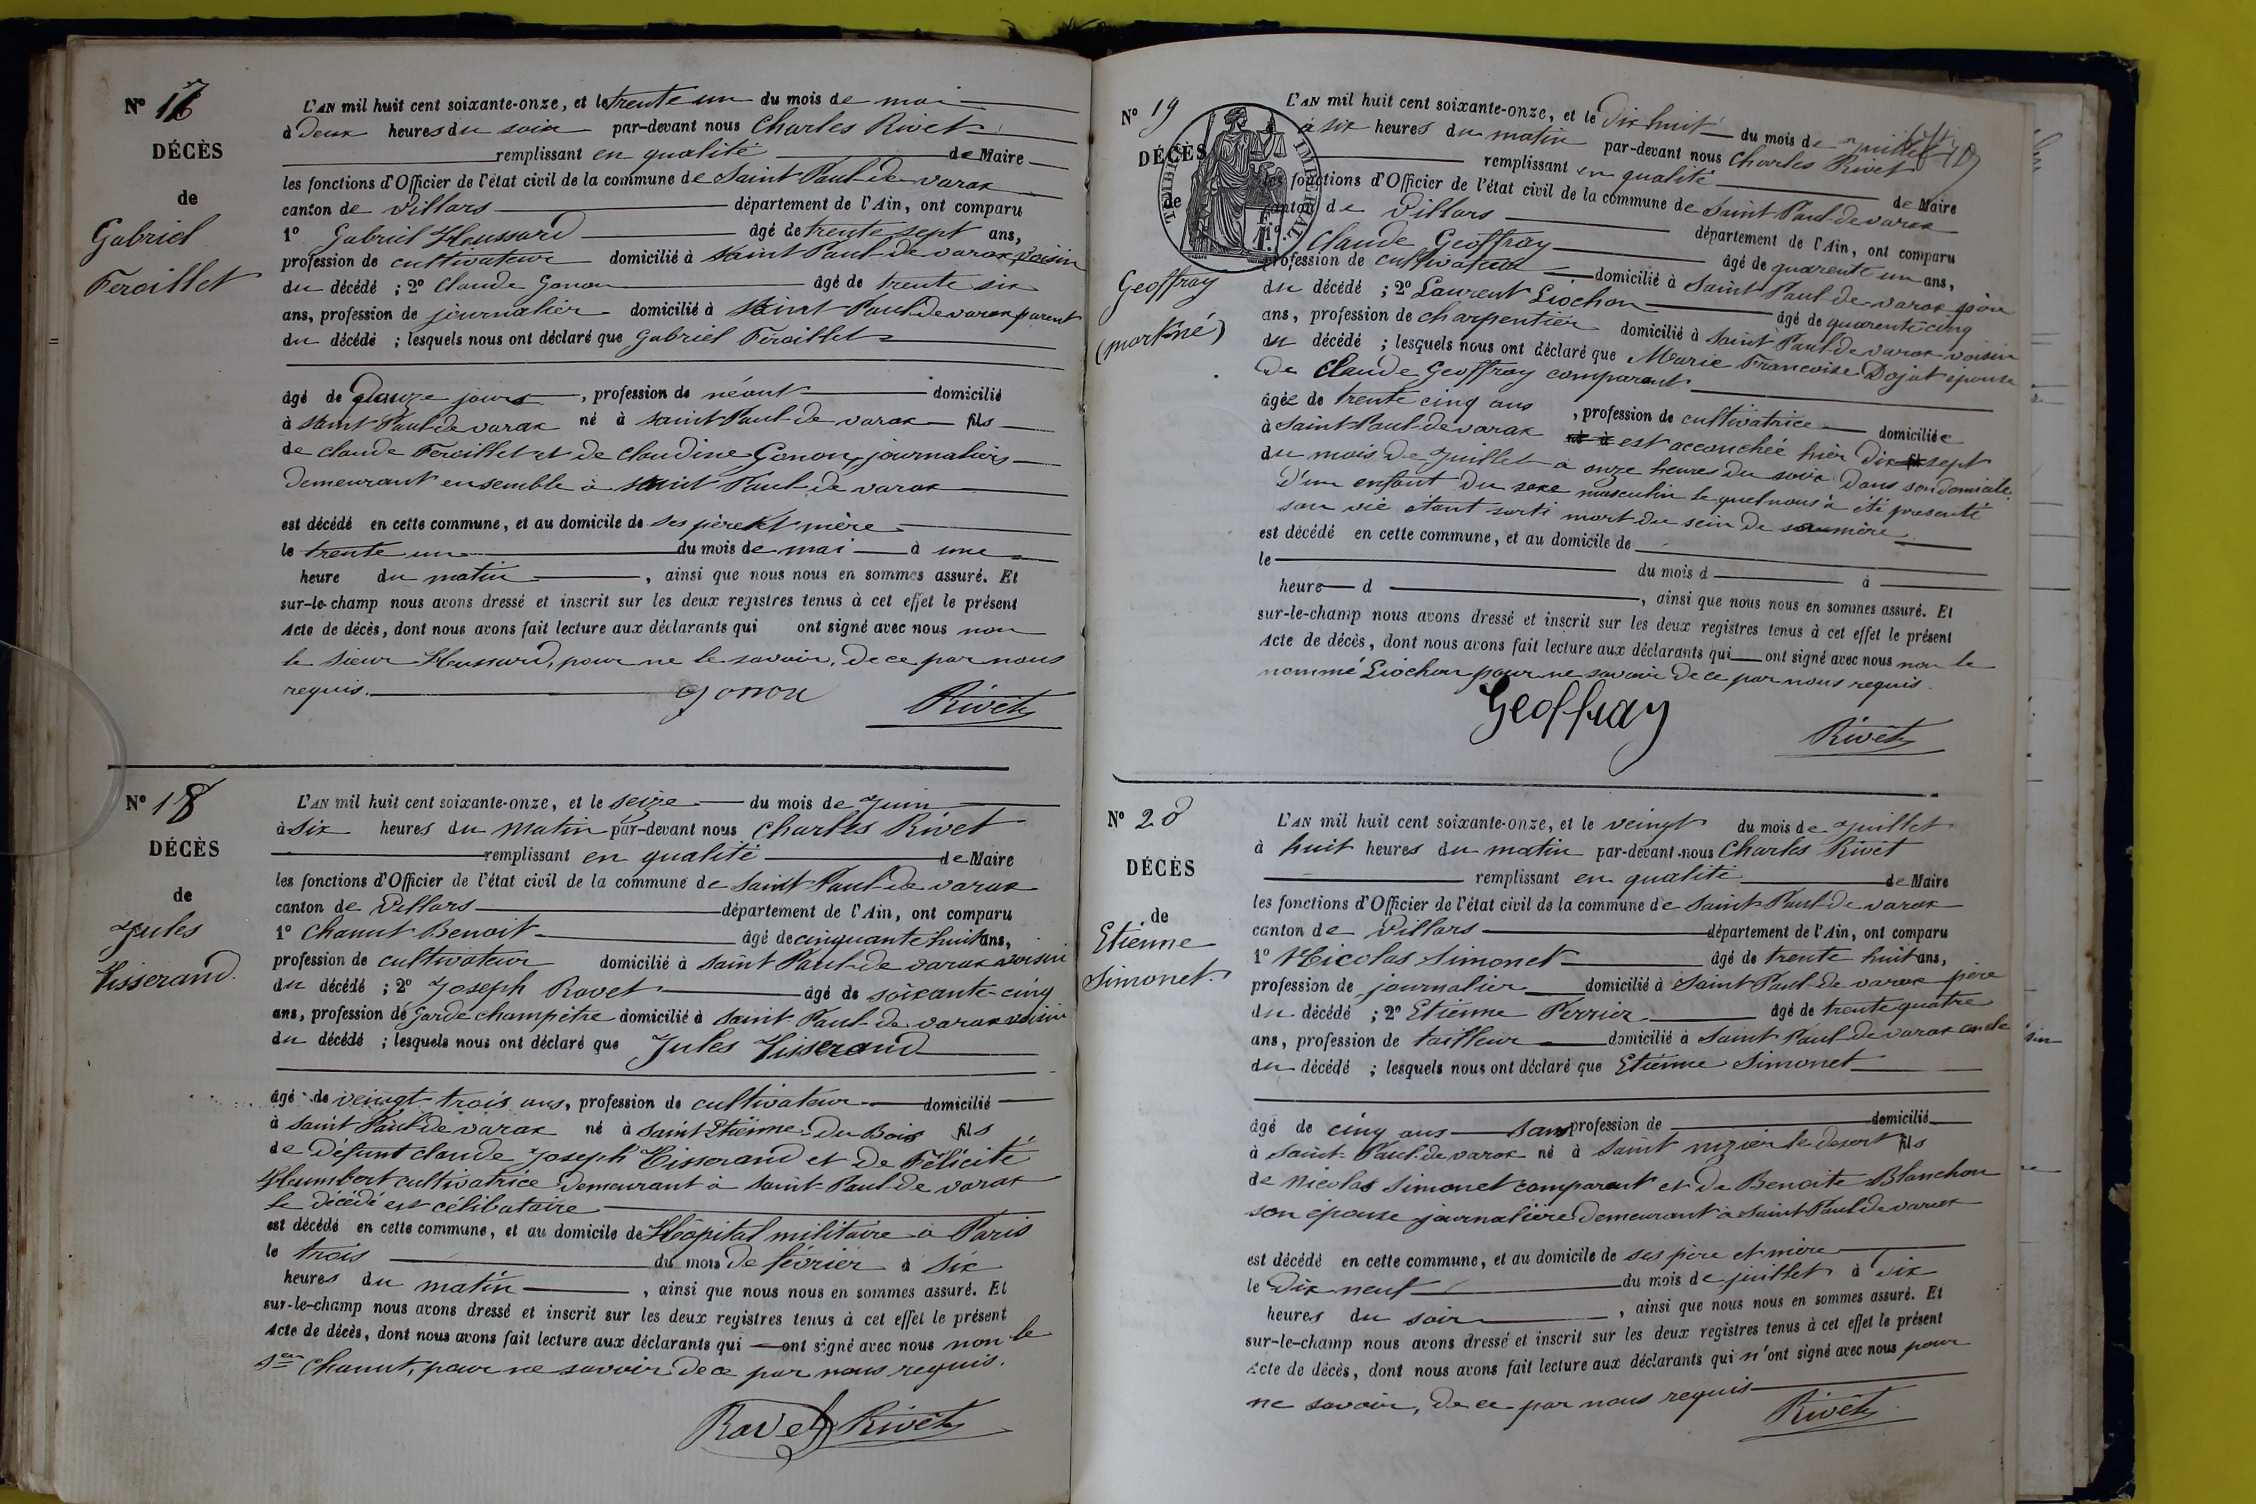 N° 17
DÉCÈS
de
Gabriel
Feroillet
L'AN mil huit cent soixante-onze, et le trente un du mois de mai
à Deux heures du soir par-devant nous Charles Rivet
remplissant en qualité de Maire
les fonctions d'Officier de l'état civil de la commune de Saint Paul de varax
canton de Villars département de l'Ain, ont comparu
1° Gabriel Heussard âgé de trente sept ans,
profession de cultivateur domicilié à Saint Paul de varax voisin
du décédé ; 2° Claude Gonon âgé de trente six
ans, profession de journalier domicilié à Saint Paul de varax parent
du décédé ; lesquels nous ont déclaré que Gabriel Feroillet
âgé de Douze jours, profession de néant domicilié
à Saint Paul de varax né à Saint Paul de varax fils
de claude Feroillet et de claudine Gonon, journaliers
demeurant ensemble à Saint Paul de varax
est décédé en cette commune, et au domicile de ses père et mère
le trente un du mois de mai à une
heure du matin, ainsi que nous nous en sommes assuré. Et
sur-le-champ nous avons dressé et inscrit sur les deux registres tenus à cet effet le présent
Acte de décès, dont nous avons fait lecture aux déclarants qui ont signé avec nous non
le sieur Heussard, pour ne le savoir, de ce par nous
requis.
Gonon Rivet
N° 18
DÉCÈS
de
Jules
Tisserand
L'AN mil huit cent soixante-onze, et le seize du mois de Juin
à Six heures du matin par-devant nous Charles Rivet
remplissant en qualité de Maire
les fonctions d'Officier de l'état civil de la commune de Saint Paul de varax
canton de Villars département de l'Ain, ont comparu
1° Chanut Benoit âgé de cinquante huit ans,
profession de cultivateur domicilié à Saint Paul de varax voisin
du décédé ; 2° Joseph Ravet âgé de soixante-cinq
ans, profession de garde champêtre domicilié à Saint Paul de varax voisin
du décédé ; lesquels nous ont déclaré que Jules Tisserand
âgé de veingt trois ans, profession de cultivateur domicilié
à Saint Paul de varax né à Saint Etienne du Bois fils
de Défunt claude Joseph Tisserand et de Félicité
Humbert cultivatrice demeurant à Saint Paul de varax
le décédé est célibataire
est décédé en cette commune, et au domicile de Hôpital militaire à Paris
le trois du mois de février à six
heures du matin, ainsi que nous nous en sommes assuré. Et
sur-le-champ nous avons dressé et inscrit sur les deux registres tenus à cet effet le présent
Acte de décès, dont nous avons fait lecture aux déclarants qui ont signé avec nous non le
Sr Chanut, pour ne savoir de ce par nous requis.
Ravet Rivet
N° 19
DÉCÈS
de
Geoffray
(mort né)
TIMBRE IMPÉRIAL
L'AN mil huit cent soixante-onze, et le Dix huit du mois de Juillet
à six heures du matin par-devant nous Charles Rivet
remplissant en qualité de Maire
les fonctions d'Officier de l'état civil de la commune de Saint Paul de varax
canton de Villars département de l'Ain, ont comparu
1° Claude Geoffray âgé de quarente un ans,
profession de cultivateur domicilié à Saint Paul de varax père
du décédé ; 2° Laurent Liochon âgé de quarente cinq
ans, profession de charpentier domicilié à Saint Paul de varax voisin
du décédé ; lesquels nous ont déclaré que Marie Francoise Dojat épouse
de Claude Geoffray comparant
âgée de trente cinq ans, profession de cultivatrice domiciliée
à Saint Paul de varax né à est accouchée hier Dix sept
du mois de Juillet à onze heures du soir Dans son domicile,
D'un enfant du sexe masculin le quel nous a été presenté
san vie étant sorti mort du sein de sa mère
est décédé en cette commune, et au domicile de
le du mois d à
heure d, ainsi que nous nous en sommes assuré. Et
sur-le-champ nous avons dressé et inscrit sur les deux registres tenus à cet effet le présent
Acte de décès, dont nous avons fait lecture aux déclarants qui ont signé avec nous non le
nommé Liochon pour ne savoir de ce par nous requis.
Geoffray
Rivet
N° 20
DÉCÈS
de
Etienne
Simonet
L'AN mil huit cent soixante-onze, et le veingt du mois de Juillet
à huit heures du matin par-devant nous Charles Rivet
remplissant en qualité de Maire
les fonctions d'Officier de l'état civil de la commune de Saint Paul de varax
canton de Villars département de l'Ain, ont comparu
1° Nicolas Simonet âgé de trente huit ans,
profession de journalier domicilié à Saint Paul de varax père
du décédé ; 2° Etienne Perrier âgé de trente quatre
ans, profession de tailleur domicilié à Saint Paul de varax oncle
du décédé ; lesquels nous ont déclaré que Etienne Simonet
âgé de cinq ans sans profession de domicilié
à Saint Paul de varax né à Saint nizier le desert fils
de Nicolas Simonet comparant et de Benoite Blanchon
son épouse journalière demeurant à Saint Paul de varax
est décédé en cette commune, et au domicile de ses père et mère
le Dix neuf du mois de juillet à Dix
heures du soir, ainsi que nous nous en sommes assuré. Et
sur-le-champ nous avons dressé et inscrit sur les deux registres tenus à cet effet le présent
Acte de décès, dont nous avons fait lecture aux déclarants qui n'ont signé avec nous pour
ne savoir, de ce par nous requis
Rivet